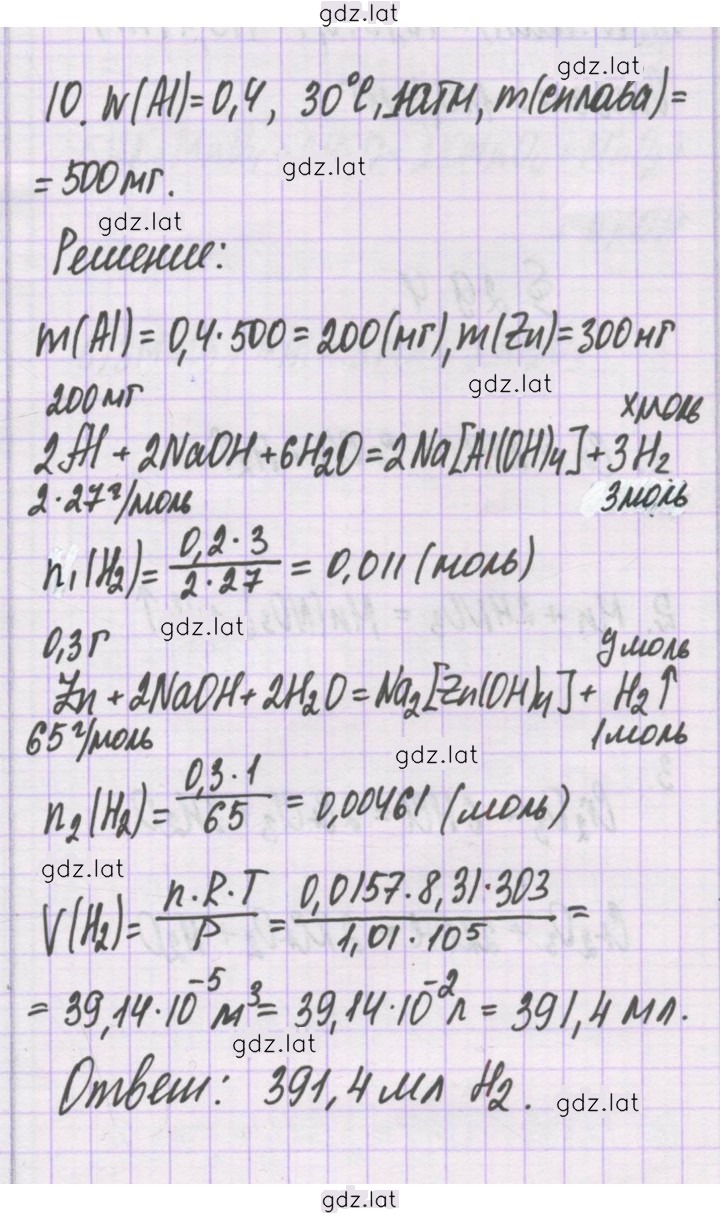 gdz.lat
gdz.lat
10. w(Al)=0,4, 30°C, 1атм, m(сплава)=
gdz.lat
=500мг.
gdz.lat
Решение:
m(Al)=0,4·500=200(мг), m(Zn)=300мг
gdz.lat
200мг xмоль
2Al+2NaOH+6H₂O=2Na[Al(OH)₄]+3H₂
2·27г/моль 3моль
n₁(H₂)= 0,2·3 / 2·27 = 0,011 (моль)
gdz.lat
0,3г yмоль
Zn+2NaOH+2H₂O=Na₂[Zn(OH)₄]+H₂↑
65г/моль 1моль
gdz.lat
n₂(H₂)= 0,3·1 / 65 = 0,00461 (моль)
gdz.lat
V(H₂)= n·R·T / P = 0,0157·8,31·303 / 1,01·10⁵ =
=39,14·10⁻⁵м³=39,14·10⁻²л=391,4мл.
gdz.lat
Ответ: 391,4мл H₂.
gdz.lat
gdz.lat